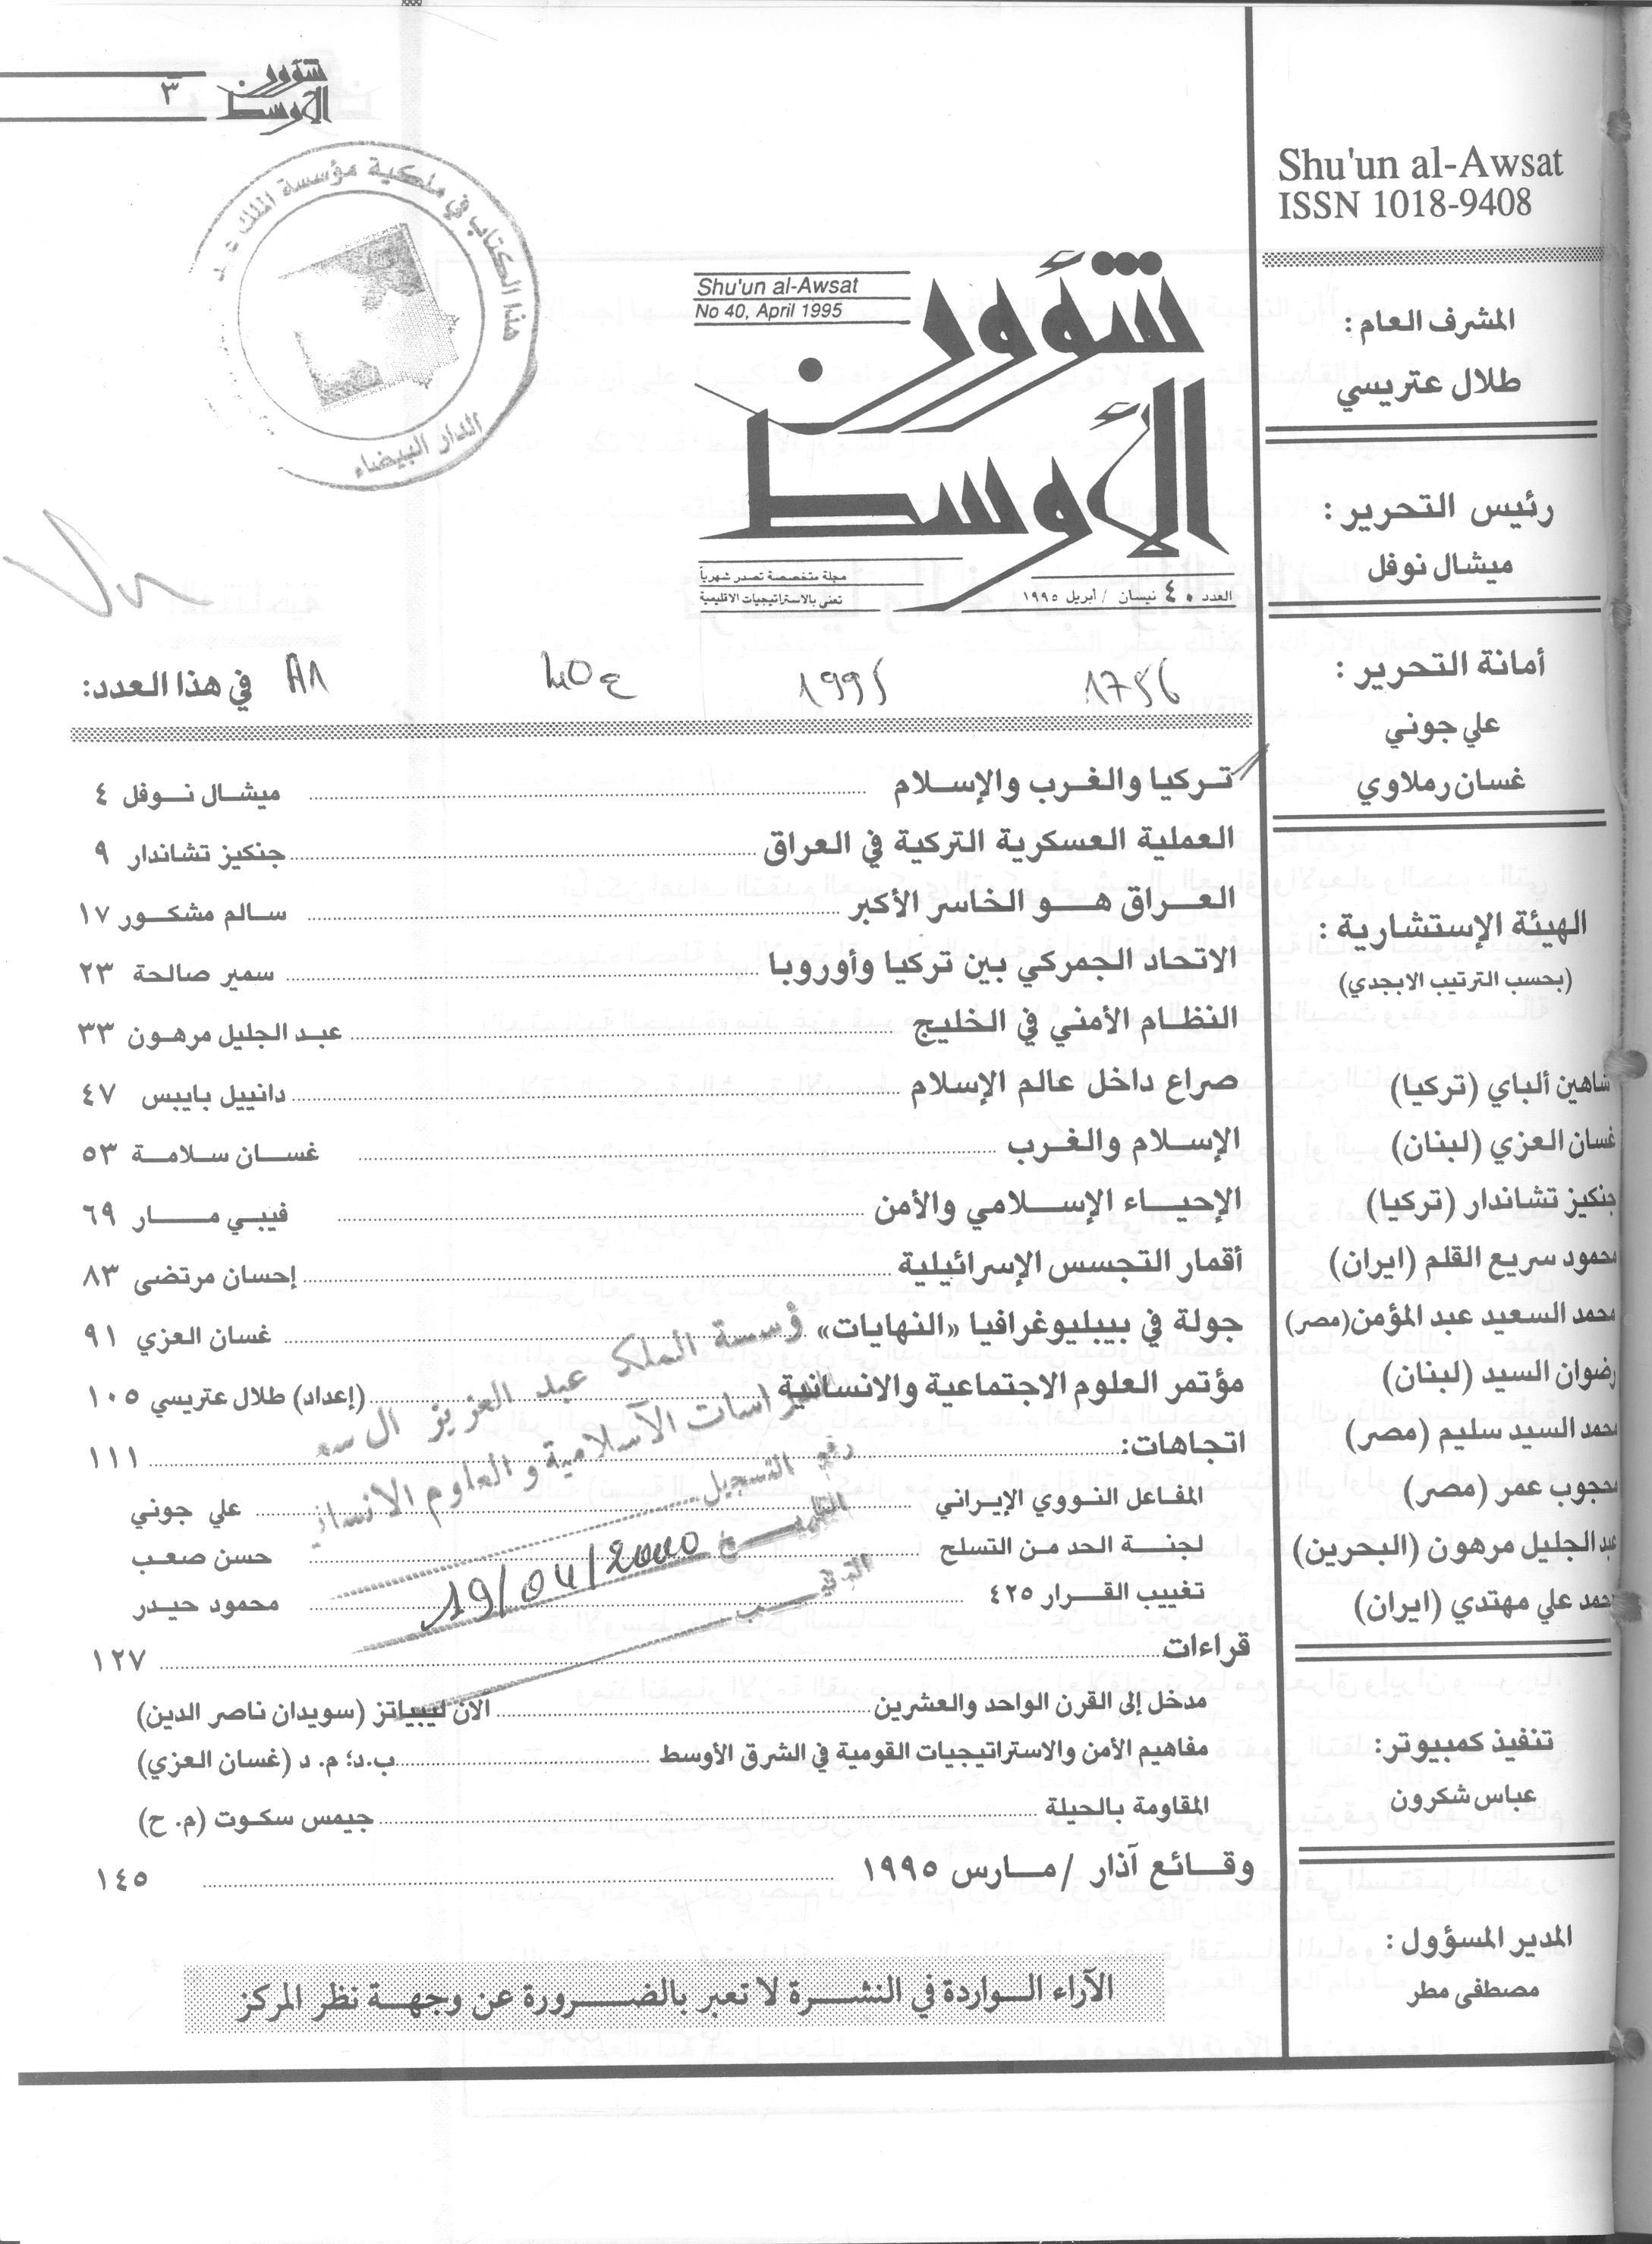 ٣
شؤون
الأوسط
هذا الكتاب في ملكية مؤسسة الملك ع.
الدار البيضاء
Shu'un al-Awsat
No 40, April 1995
شؤون
الأوسط
مجلة متخصصة تصدر شهرياً
تعنى بالاستراتيجيات الاقليمية
العدد ٤٠ نيسان / أبريل ١٩٩٥
1756
1995
40ع
A1
في هذا العدد:
تركيا والغرب والإسلام ........ ميشال نوفل ٤
العملية العسكرية التركية في العراق ........ جنكيز تشاندار ٩
العراق هو الخاسر الأكبر ........ سالم مشكور ١٧
الاتحاد الجمركي بين تركيا وأوروبا ........ سمير صالحة ٢٣
النظام الأمني في الخليج ........ عبد الجليل مرهون ٣٣
صراع داخل عالم الإسلام ........ دانييل بايبس ٤٧
الإسلام والغرب ........ غسان سلامة ٥٣
الإحياء الإسلامي والأمن ........ فيبي مار ٦٩
أقمار التجسس الإسرائيلية ........ إحسان مرتضى ٨٣
جولة في بيبليوغرافيا «النهايات» ........ غسان العزي ٩١
مؤتمر العلوم الاجتماعية والانسانية ........ (إعداد) طلال عتريسي ١٠٥
اتجاهات: ........ ١١١
المفاعل النووي الإيراني ........ علي جوني
لجنة الحد من التسلح ........ حسن صعب
تغييب القرار ٤٢٥ ........ محمود حيدر
قراءات ........ ١٢٧
مدخل إلى القرن الواحد والعشرين ........ الان ليبياتز (سويدان ناصر الدين)
مفاهيم الأمن والاستراتيجيات القومية في الشرق الأوسط ........ ب.د؛ م. د (غسان العزي)
المقاومة بالحيلة ........ جيمس سكوت (م. ح)
وقائع آذار / مارس ١٩٩٥ ........ ١٤٥
ؤسسة الملك عبد العزيز ال سع
اسات الآسلامية والعلوم الانساني
رقم التسجيل
التاريخ 19/04/2000
الترتيب
الآراء الواردة في النشرة لا تعبر بالضرورة عن وجهة نظر المركز
Shu'un al-Awsat
ISSN 1018-9408
المشرف العام:
طلال عتريسي
رئيس التحرير:
ميشال نوفل
أمانة التحرير:
علي جوني
غسان رملاوي
الهيئة الإستشارية:
(بحسب الترتيب الابجدي)
شاهين ألباي (تركيا)
غسان العزي (لبنان)
جنكيز تشاندار (تركيا)
محمود سريع القلم (ايران)
محمد السعيد عبد المؤمن (مصر)
رضوان السيد (لبنان)
محمد السيد سليم (مصر)
محجوب عمر (مصر)
عبد الجليل مرهون (البحرين)
محمد علي مهتدي (ايران)
تنفيذ كمبيوتر:
عباس شكرون
المدير المسؤول:
مصطفى مطر